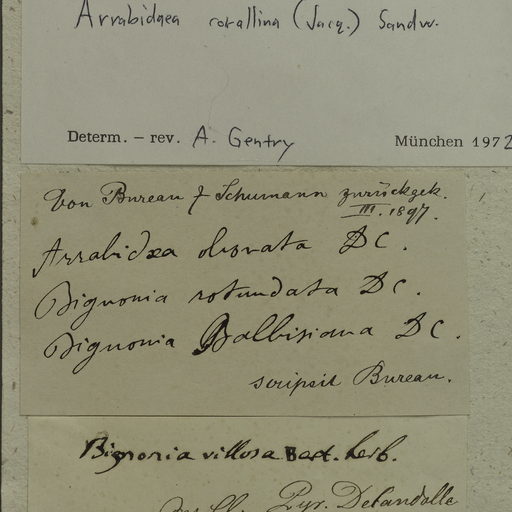 Arrabidaea corallina (Jacq.) Sandw.
Determ. – rev. A. Gentry München 1972
Von Bureau f Schumann zurückgek.
III. 1897.
Arrabidaea obovata DC.
Bignonia rotundata DC.
Bignonia Balbisiana DC.
scripsit Bureau.
Bignonia villosa herb.
Pyr. Decandolle